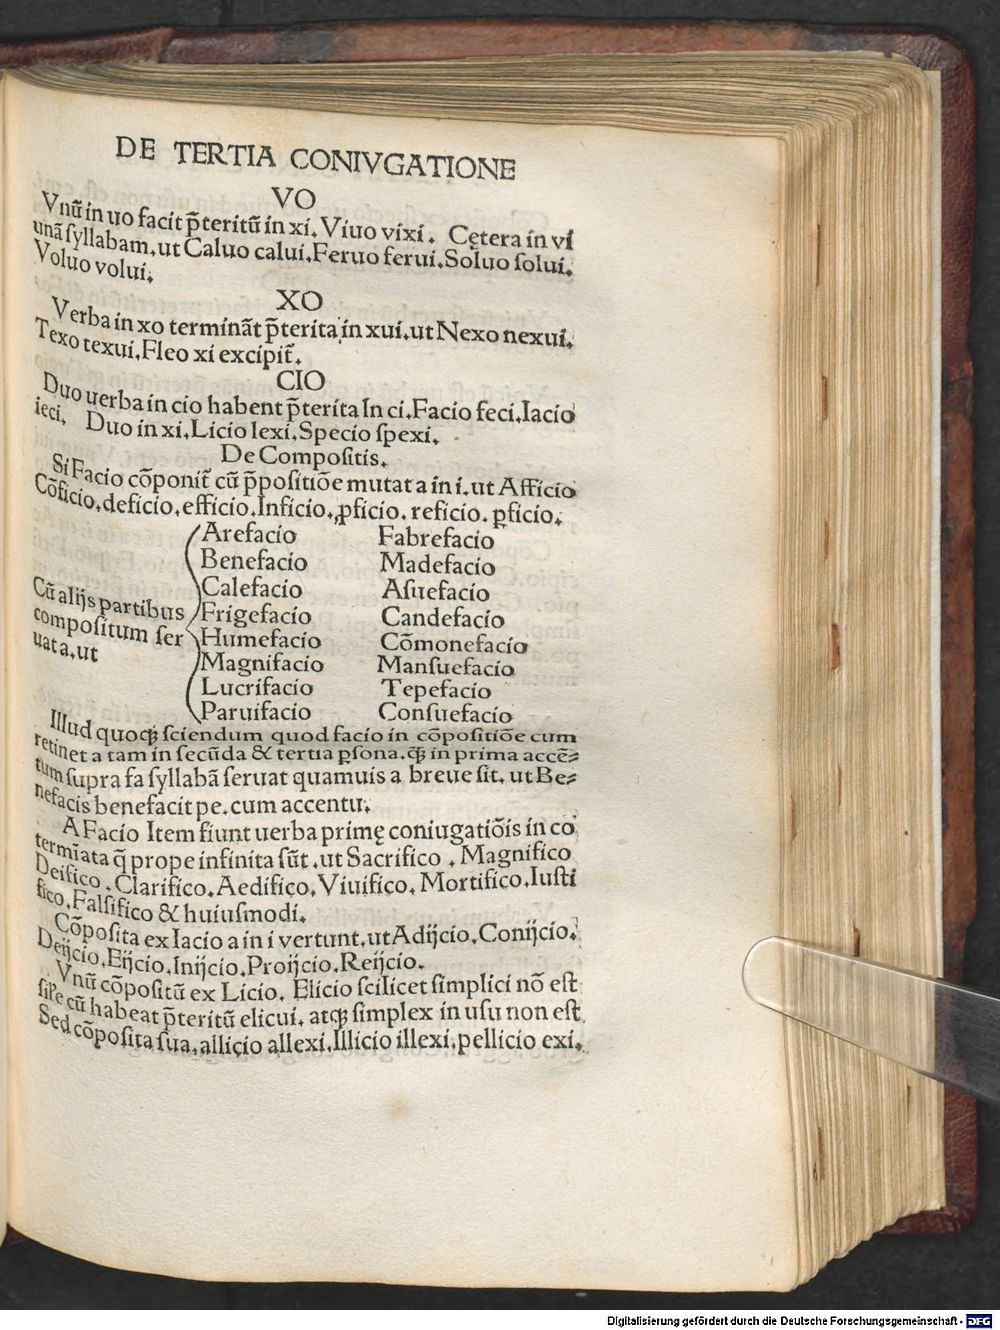 DE TERTIA CONIVGATIONE
VO
Vnũ in uo facit p̃teritũ in xi. Viuo vixi. Cętera in vi
unã syllabam. ut Caluo calui. Feruo ferui. Soluo solui.
Voluo volui.
XO
Verba in xo terminãt p̃terita in xui. ut Nexo nexui.
Texo texui. Fleo xi excipit̃.
CIO
Duo uerba in cio habent p̃terita In ci. Facio feci. Iacio
ieci. Duo in xi. Licio lexi. Specio spexi.
De Compositis.
Si Facio cõponit̃ cũ p̃positiõe mutat a in i. ut Afficio
Cõficio. deficio. efficio. Inficio. ꝓficio. reficio. ꝑficio.
Cũ alijs partibus
compositum ser
uat a. ut
Arefacio Fabrefacio
Benefacio Madefacio
Calefacio Asuefacio
Frigefacio Candefacio
Humefacio Cõmonefacio
Magnifacio Mansuefacio
Lucrifacio Tepefacio
Paruifacio Consuefacio
Illud quoqꝫ sciendum quod facio in cõpositiõe cum
retinet a tam in secũda & tertia ꝑsona. qꝫ in prima accẽ-
tum supra fa syllabã seruat quamuis a breue sit. ut Be-
nefacis benefacit pe. cum accentu.
A Facio Item fiunt uerba primę coniugatiõis in co
termĩata q̃ prope infinita sũt. ut Sacrifico. Magnifico
Deifico. Clarifico. Aedifico. Viuifico. Mortifico. Iusti
fico. Falsifico & huiusmodi.
Cõposita ex Iacio a in i vertunt. ut Adijcio. Conijcio.
Deijcio. Eijcio. Inijcio. Proijcio. Reijcio.
Vnũ cõpositũ ex Licio. Elicio scilicet simplici nõ est
cũ habeat p̃teritũ elicui. atqꝫ simplex in usu non est.
Sed cõposita sua. allicio allexi. Illicio illexi. pellicio exi.
Digitalisierung gefördert durch die Deutsche Forschungsgemeinschaft - DFG